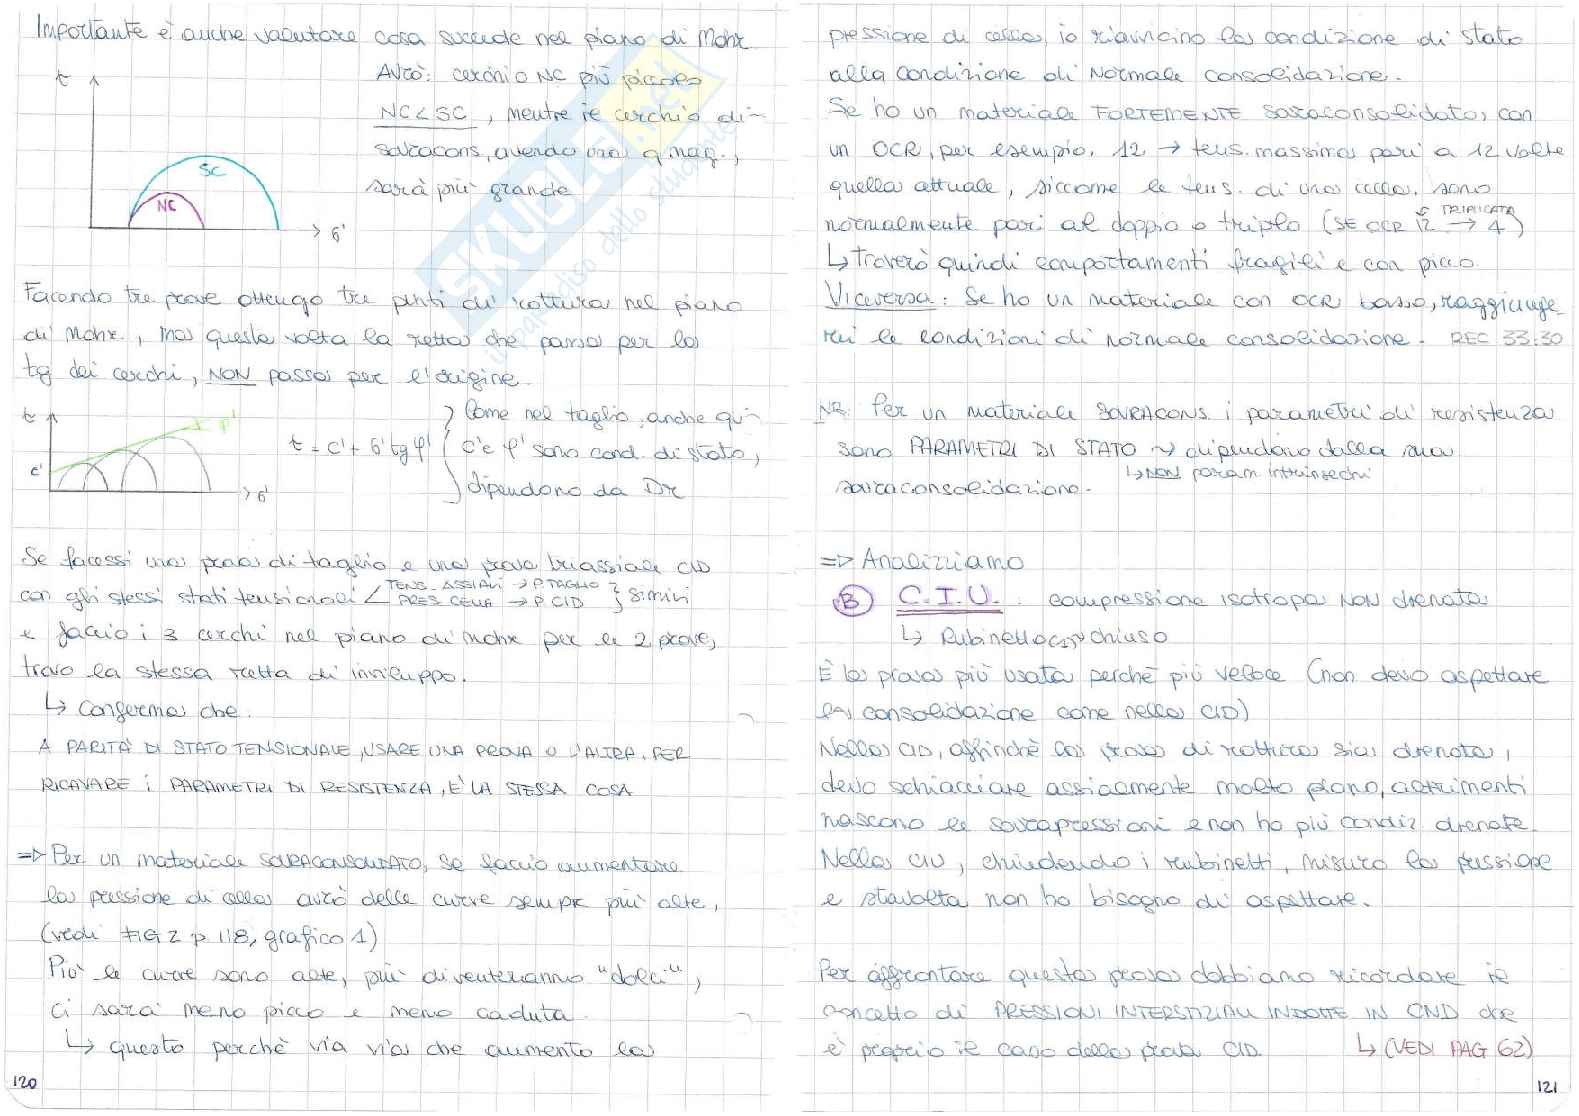 Importante è anche valutare cosa succede nel piano di Mohr
τ
Avrò: cerchio NC più piccolo
NC < SC, mentre il cerchio di
sovracons, avendo una q mag.,
sarà più grande
SC
NC
σ'
Facendo tre prove ottengo tre punti di rottura nel piano
di Mohr, ma questa volta la retta che passa per la
tg dei cerchi, NON passa per l'origine.
τ
φ'
c'
σ'
τ = c' + σ' tg φ'
Come nel taglio, anche qui
c' e φ' sono cond. di stato,
dipendono da Dr
Se facessi una prova di taglio e una prova triassiale CID
con gli stessi stati tensionali < TENS. ASSIALI → P. TAGLIO
PRES CELLA → P CID } Simili
e faccio i 3 cerchi nel piano di Mohr per le 2 prove,
trovo la stessa retta di inviluppo.
↳ Conferma che.
A PARITÀ DI STATO TENSIONALE, USARE UNA PROVA O L'ALTRA, PER
RICAVARE i PARAMETRI DI RESISTENZA, È LA STESSA COSA
⇒ Per un materiale SOVRACONSOLIDATO, se faccio aumentare
la pressione di cella avrò delle curve sempre più alte,
(vedi FIG 2 p 118, grafico 1)
Più le curve sono alte, più diventeranno "dolci",
ci sarà meno picco e meno caduta.
↳ questo perchè via via che aumento la
120
pressione di cella, io riavvicino la condizione di stato
alla condizione di Normale consolidazione.
Se ho un materiale FORTEMENTE sovraconsolidato, con
un OCR, per esempio, 12 → tens. massima pari a 12 volte
quella attuale, siccome le tens. di una cella, sono
normalmente pari al doppio o triplo (SE OCR 12 → 4)
TRIPLICATA
↳ troverò quindi comportamenti fragili e con picco.
Viceversa: Se ho un materiale con OCR basso, raggiunge
rei le condizioni di normale consolidazione. REC 33:30
NB: Per un materiale SOVRACONS. i parametri di resistenza
sono PARAMETRI DI STATO ~> dipendono dalla sua
↳ NON param intrinsechi
sovraconsolidazione.
⇒ Analizziamo
B C.I.U. compressione isotropa NON drenata
↳ Rubinetto chiuso
È la prova più usata perchè più veloce (non devo aspettare
la consolidazione come nella CID)
Nella CID, affinchè la prova di rottura sia drenata,
devo schiacciare assialmente molto piano, altrimenti
nascono le sovrapressioni e non ho più condiz drenate.
Nella CIU, chiudendo i rubinetti, misuro la pressione
e stavolta non ho bisogno di aspettare.
Per affrontare questa prova dobbiamo ricordare il
concetto di PRESSIONI INTERSTIZIALI INDOTTE IN CND che
è proprio il caso della prova CID. ↳ (VEDI PAG 62)
121
SKUOLA.net
il paradiso dello studente